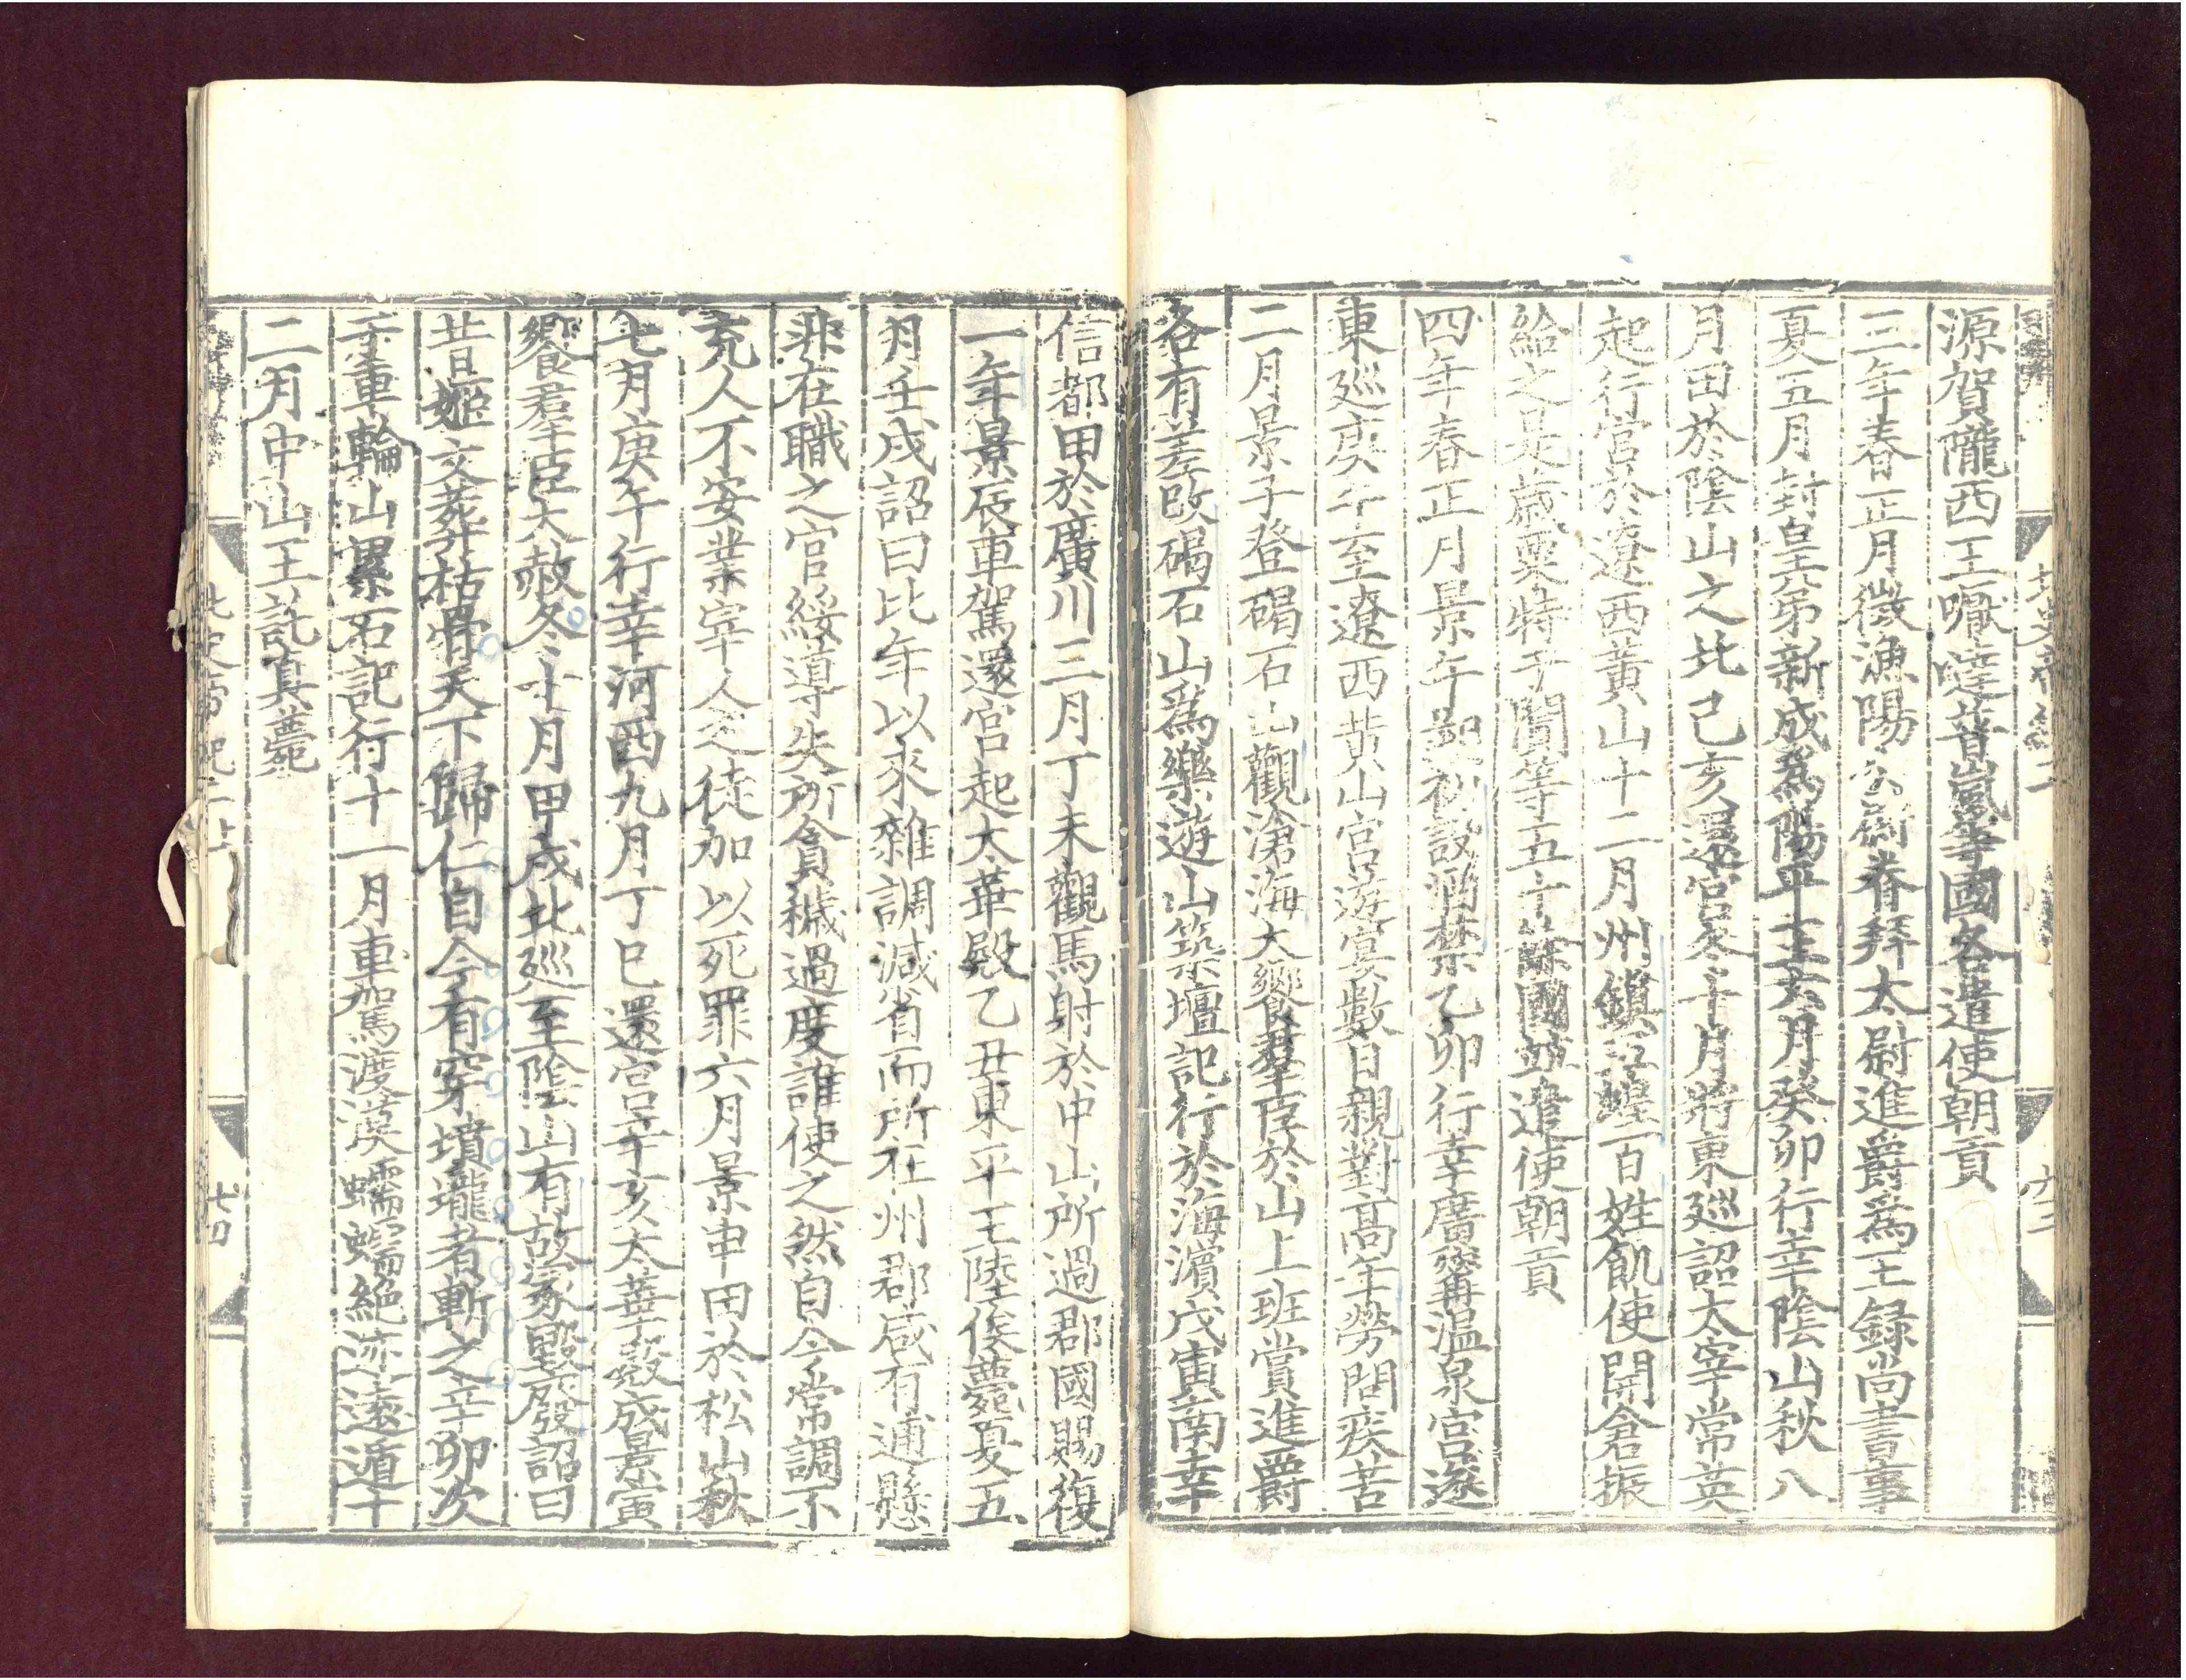 源賀隴西王嚈噠普嵐等國各遣使朝貢
三年春正月徵漁陽公尉眷拜太尉進爵爲王録尚書事
夏五月封皇弟新成爲陽平王六月癸卯行幸陰山秋八
月田於陰山之北己亥還宮冬十月將東廵詔太宰常英
起行宮於遼西黃山十二月州鎮五蝗百姓飢使開倉振
給之是歲粟特于闐等五十餘國並遣使朝貢
四年春正月景午朔初設酒禁乙卯行幸廣甯温泉宮遂
東廵庚午至遼西黄山宮游宴數日親對高年勞問疾苦
二月景子登碣石山觀滄海大饗羣臣於山上班賞進爵
各有差改碣石山爲樂遊山築壇記行於海濱戊寅南幸
信都田於廣川三月丁未觀馬射於中山所過郡國賜復
一年景辰車駕還宮起太華殿乙丑東平王陸俟薨夏五
月壬戌詔曰比年以來雜調減省而所在州郡咸有逋懸
非在職之官綏導失所貪穢過度誰使之然自今常調不
充人不安業宰人之徒加以死罪六月景申田於松山秋
七月庚午行幸河西九月丁巳還宮辛亥太華殿成景寅
饗羣臣大赦冬十月甲戌北廵至陰山有故冢毀廢詔曰
昔姬文葬枯骨天下歸仁自今有穿墳壠者斬之辛卯次
于車輪山累石記行十一月車駕渡漠蠕蠕絶迹遠遁十
二月中山王託真薨
北史帝紀二
七四